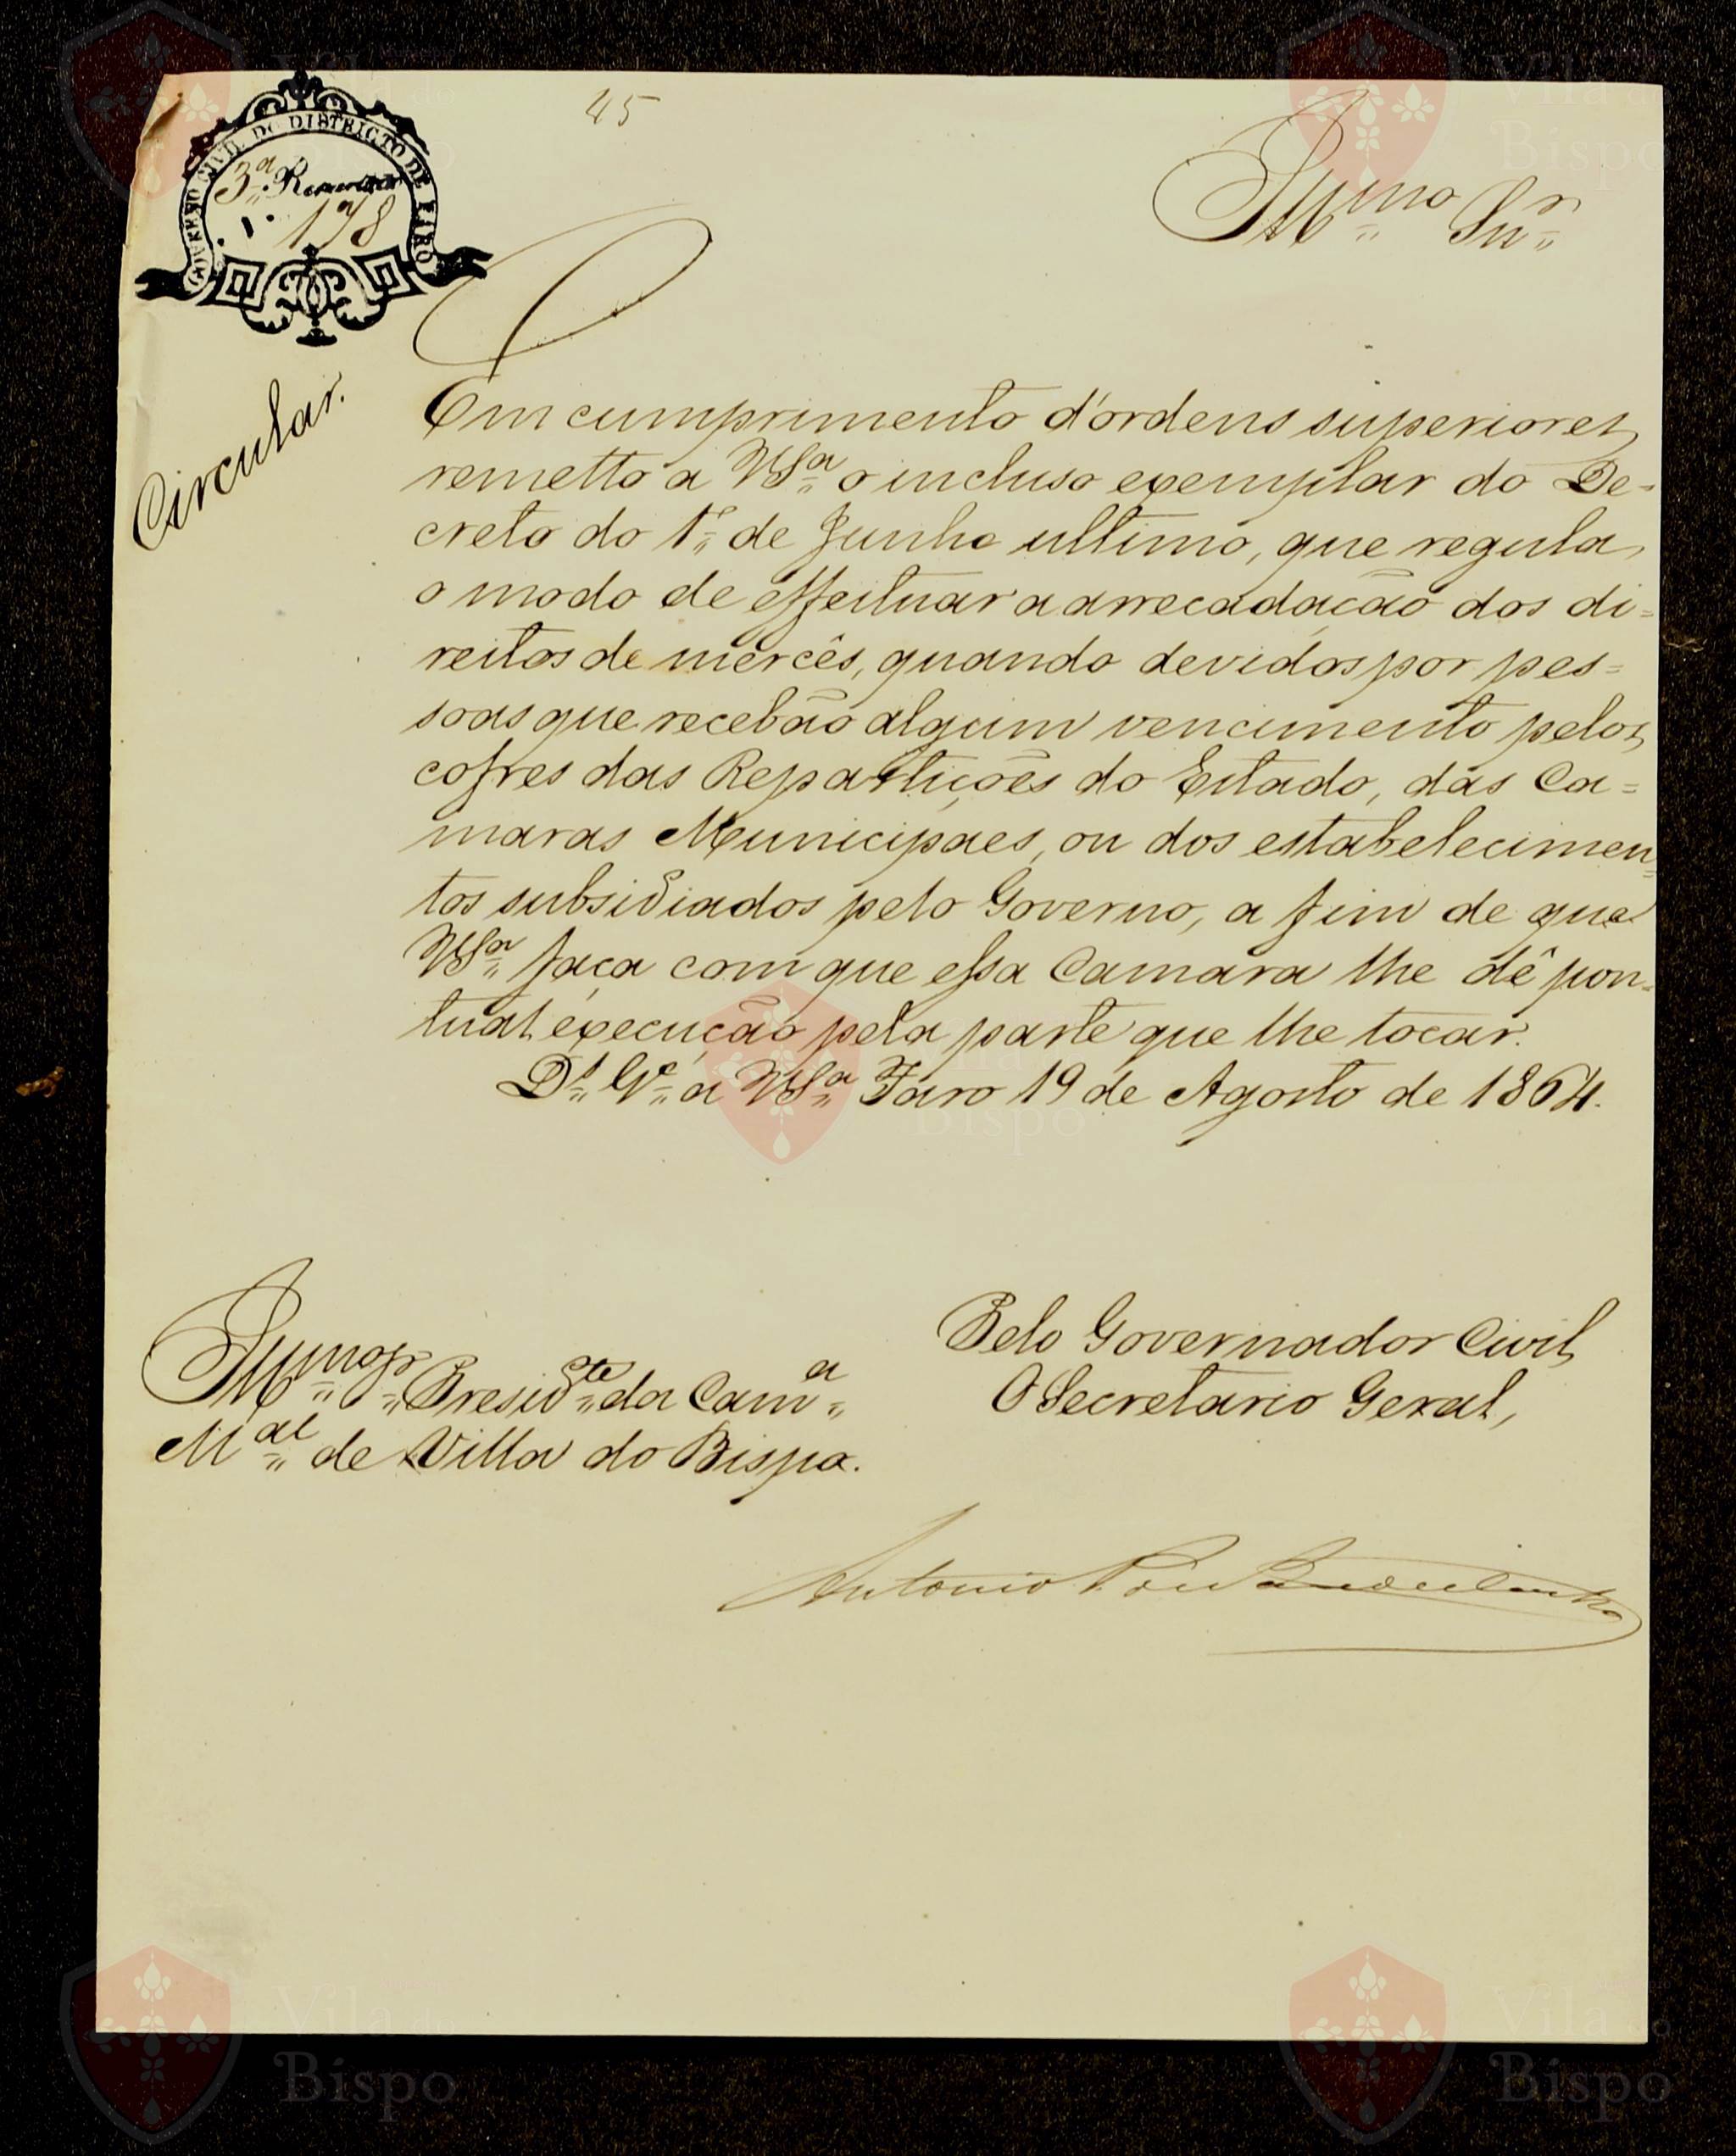 45
GOVERNO CIVIL DO DISTRICTO DE FARO
3.ª Repartição
N.º 178
Illmo Snr.
Circular.
Em cumprimento d'ordens superiores
remetto a VSª o incluso exemplar do De-
creto do 1.º de Junho ultimo, que regula
o modo de effeituar a arrecadação dos di-
reitos de mercês, quando devidos por pes-
soas que recebão algum vencimento pelos
cofres das Repartições do Estado, das Ca-
maras Municipaes, ou dos estabelecimen-
tos subsidiados pelo Governo, a fim de que
VSª faça com que essa Camara lhe dê pon-
tual execução pela parte que lhe tocar.
Ds. Ge. a VSª Faro 19 de Agosto de 1864.
Pelo Governador Civil
O Secretario Geral,
Illmo Sr. Preside. da Camª
Mal de Villa do Bispo.
Antonio
Vila do
Bispo